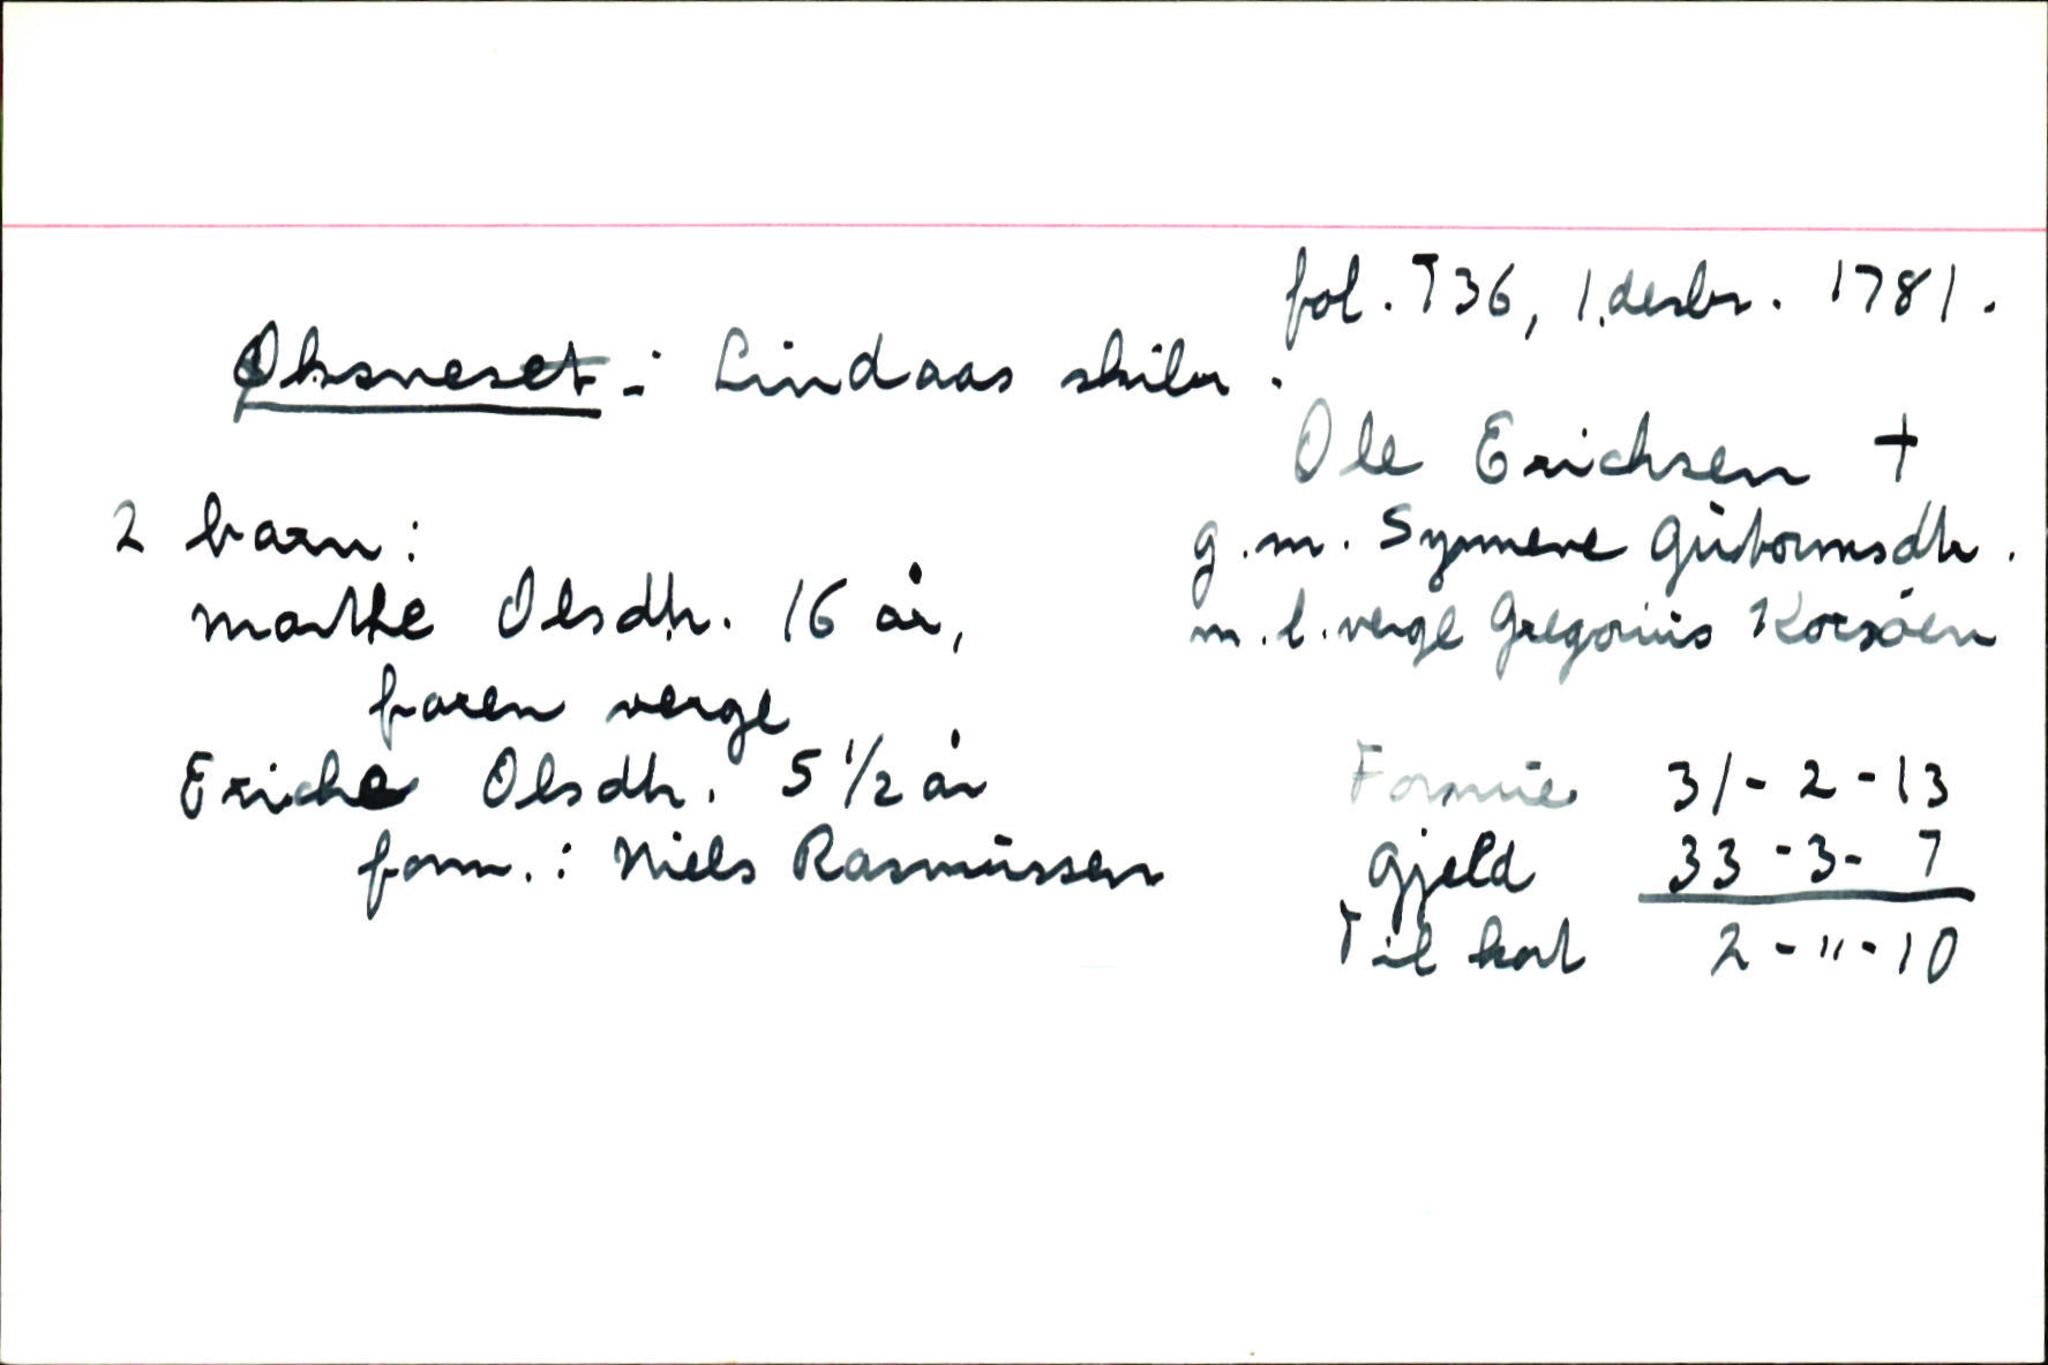 fol. 736, 1.desbr. 1781.
Øksneset: Lindaas skibr.
Ole Erichsen †
g.m. Symene Gutormsdtr.
m.l.verge Gregorius Korsøen
2 barn:
Marthe Olsdtr. 16 år,
faren verge
Eriche Olsdtr. 5 1/2 år
form.: Niels Rasmussen
Formue 31-2-13
Gjeld 33-3-7
Til kort 2-"-10